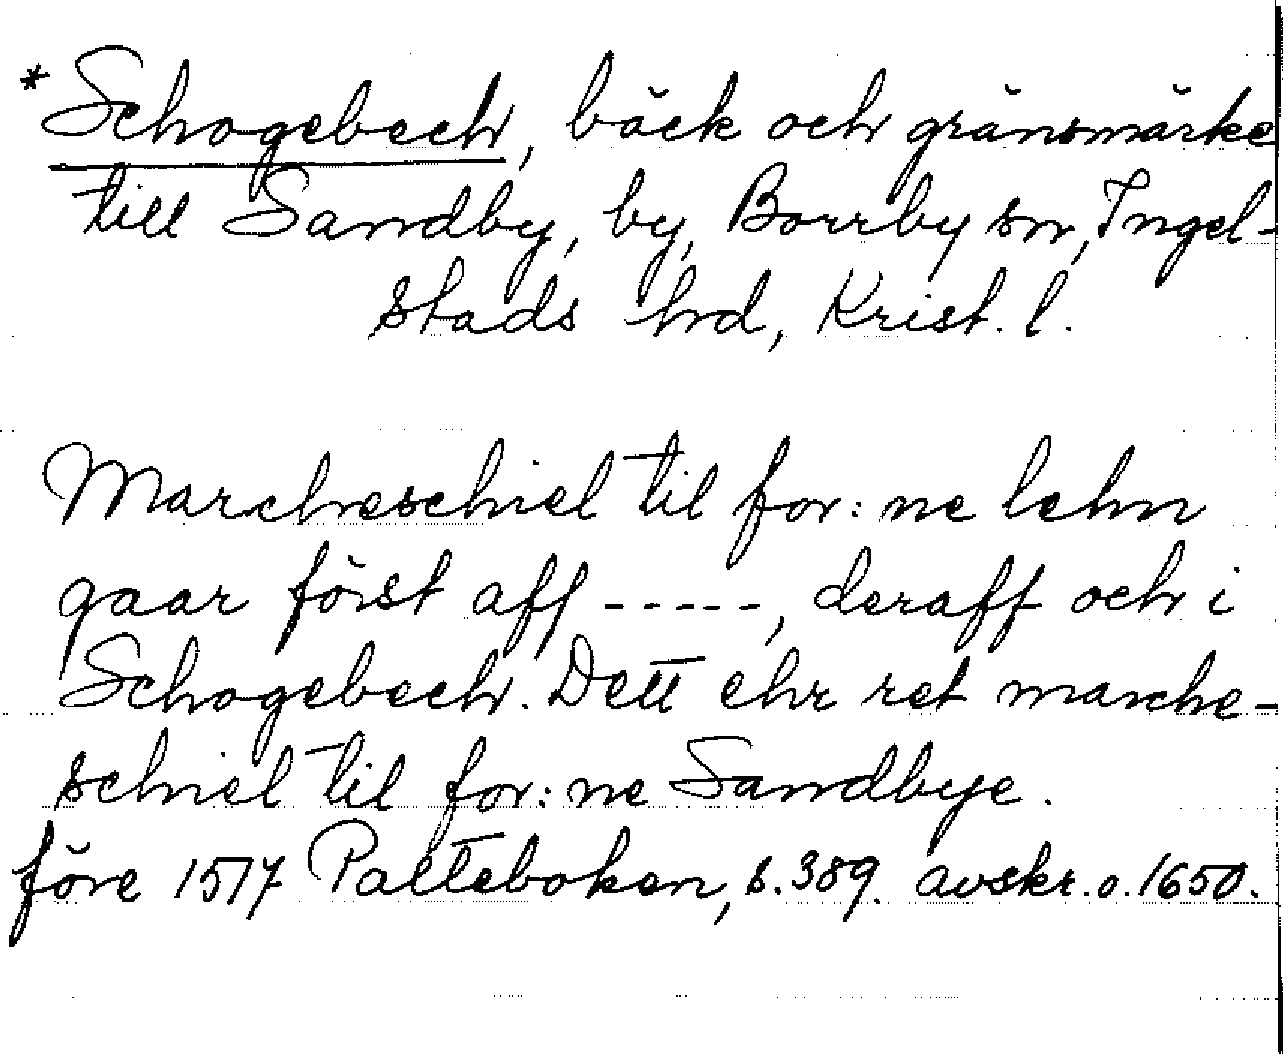 *Schogebech, bäck och gränsmärke
till Sandby, by, Borrby sn, Ingel-
stads hd, Krist. l.
Marcheschiel til for: ne lehn
gaar först aff -----, deraff och i
Schogebech. Dett ehr ret marche-
schiel til for: ne Sandbye.
före 1517 Palteboken, s. 389. avskr. o. 1650.